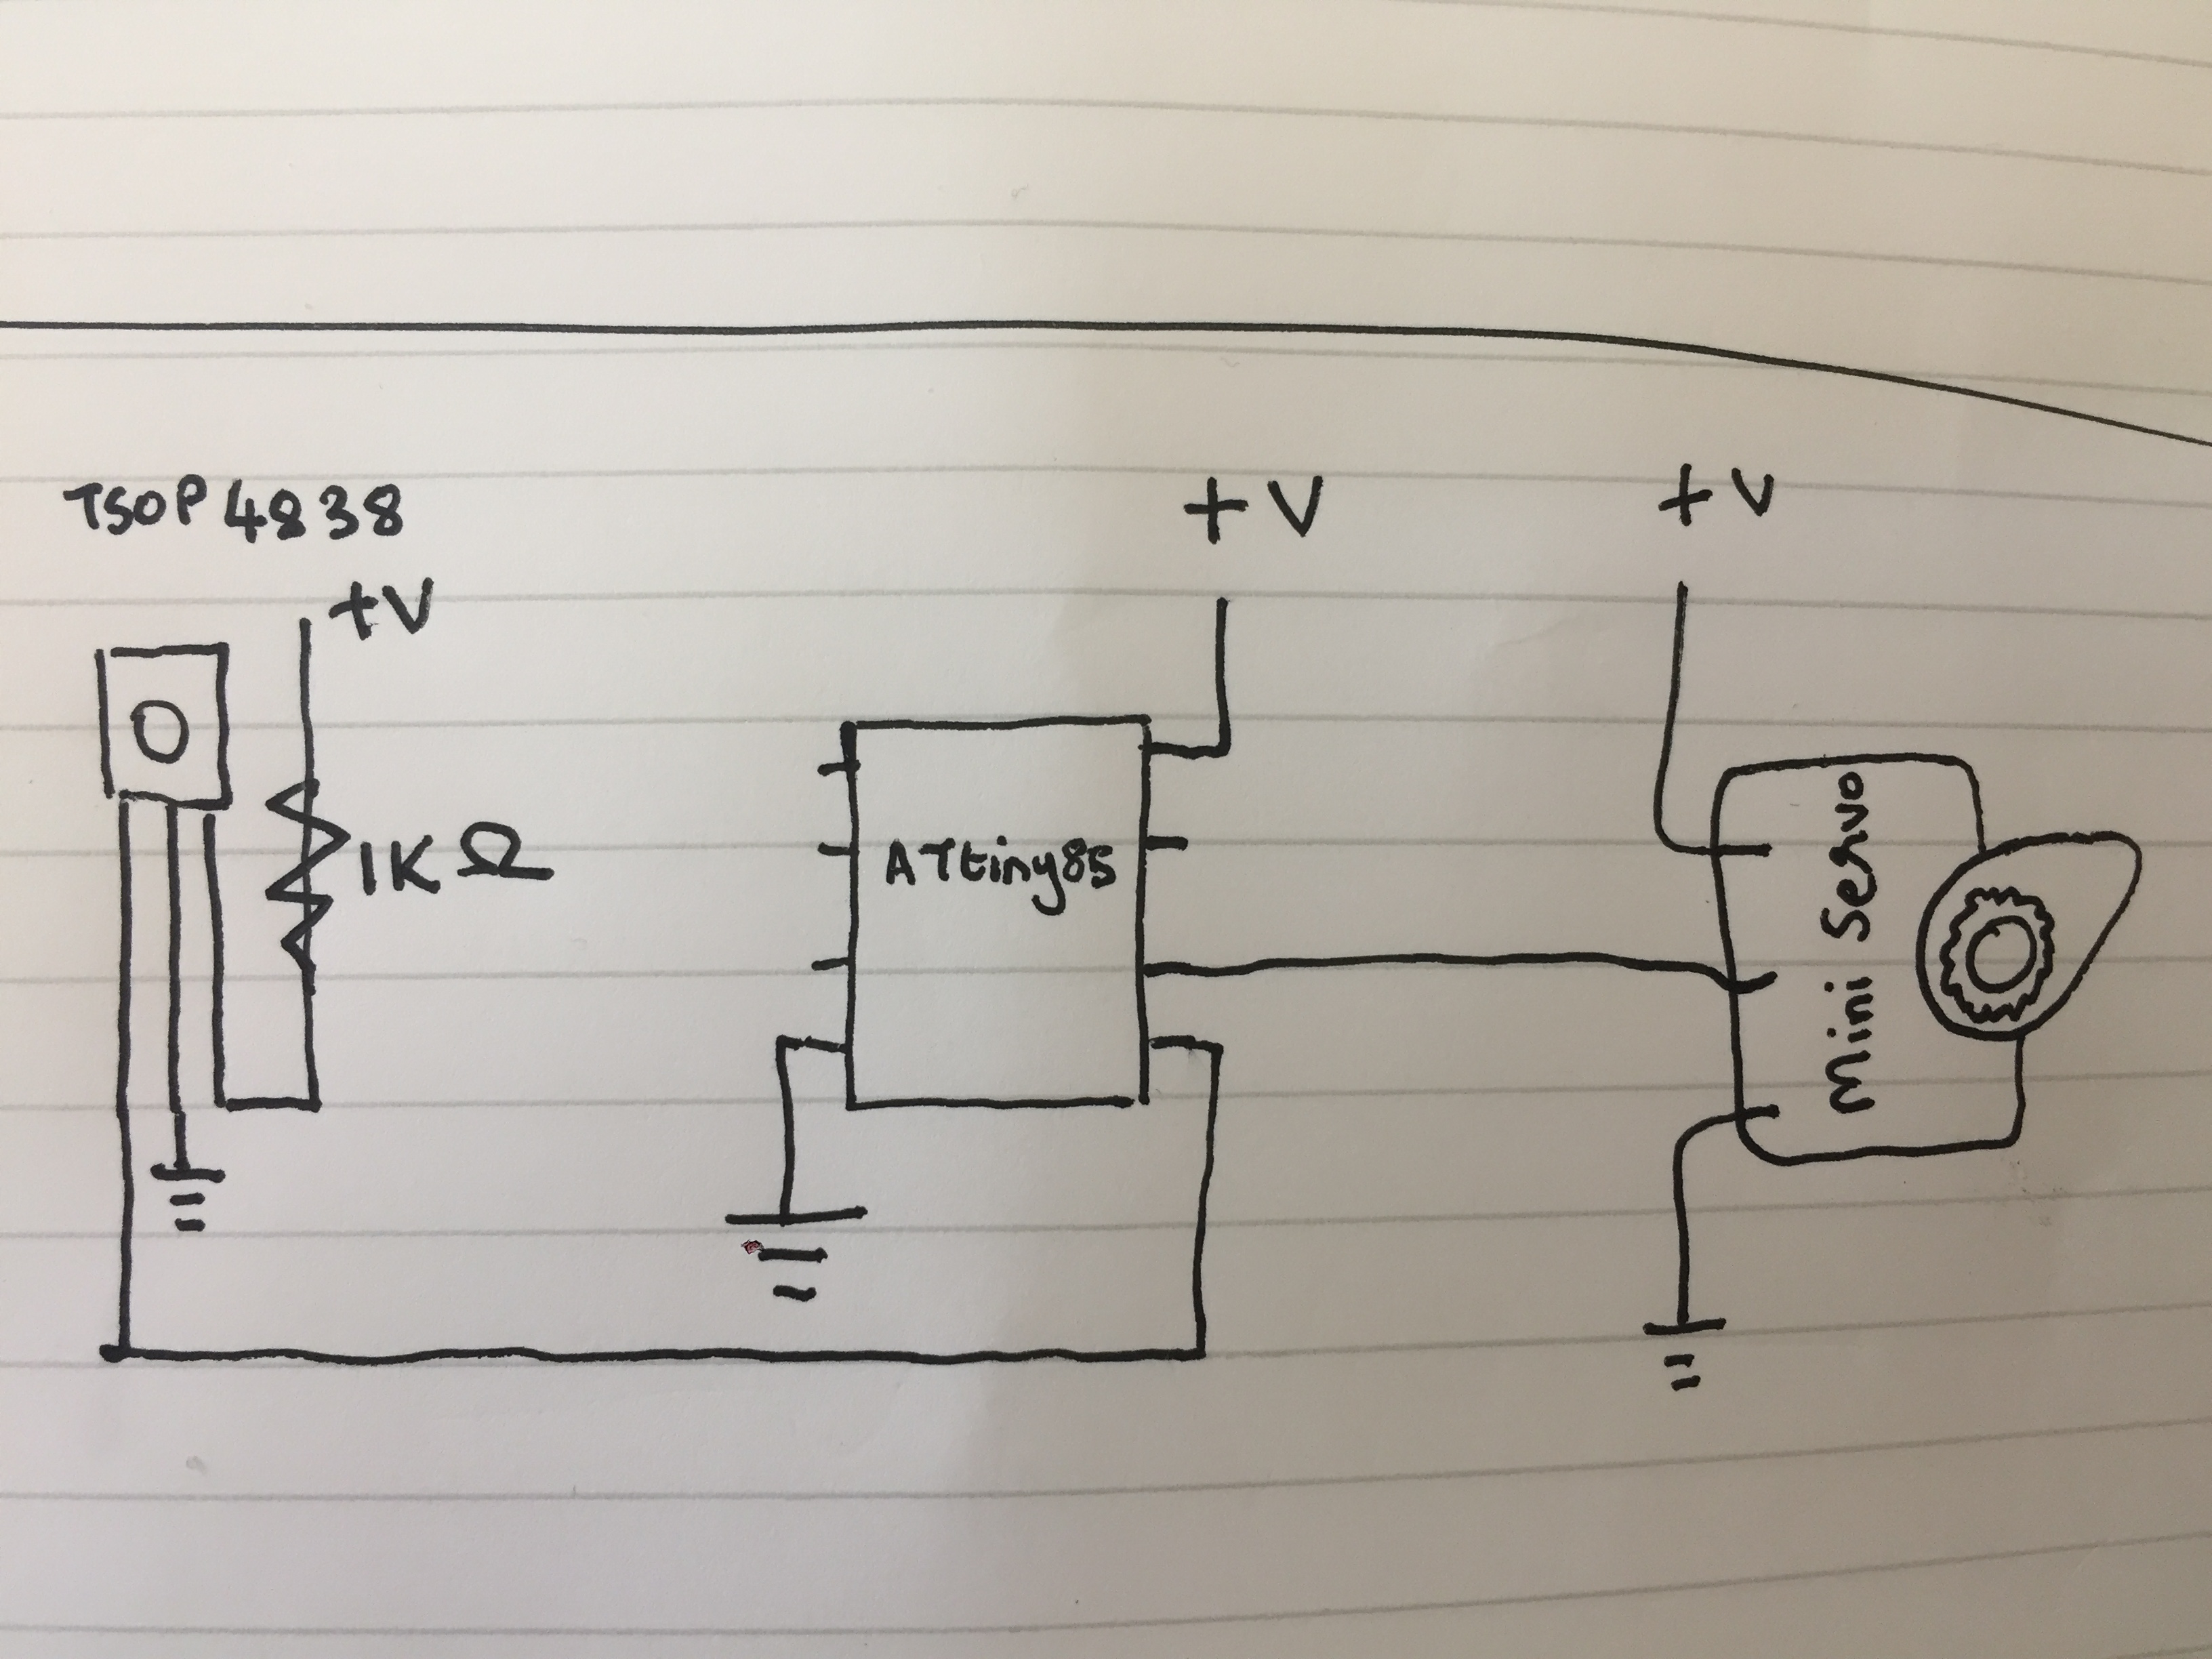 TSOP 4838
+V
1K Ω
ATtiny85
+V
+V
Mini Servo